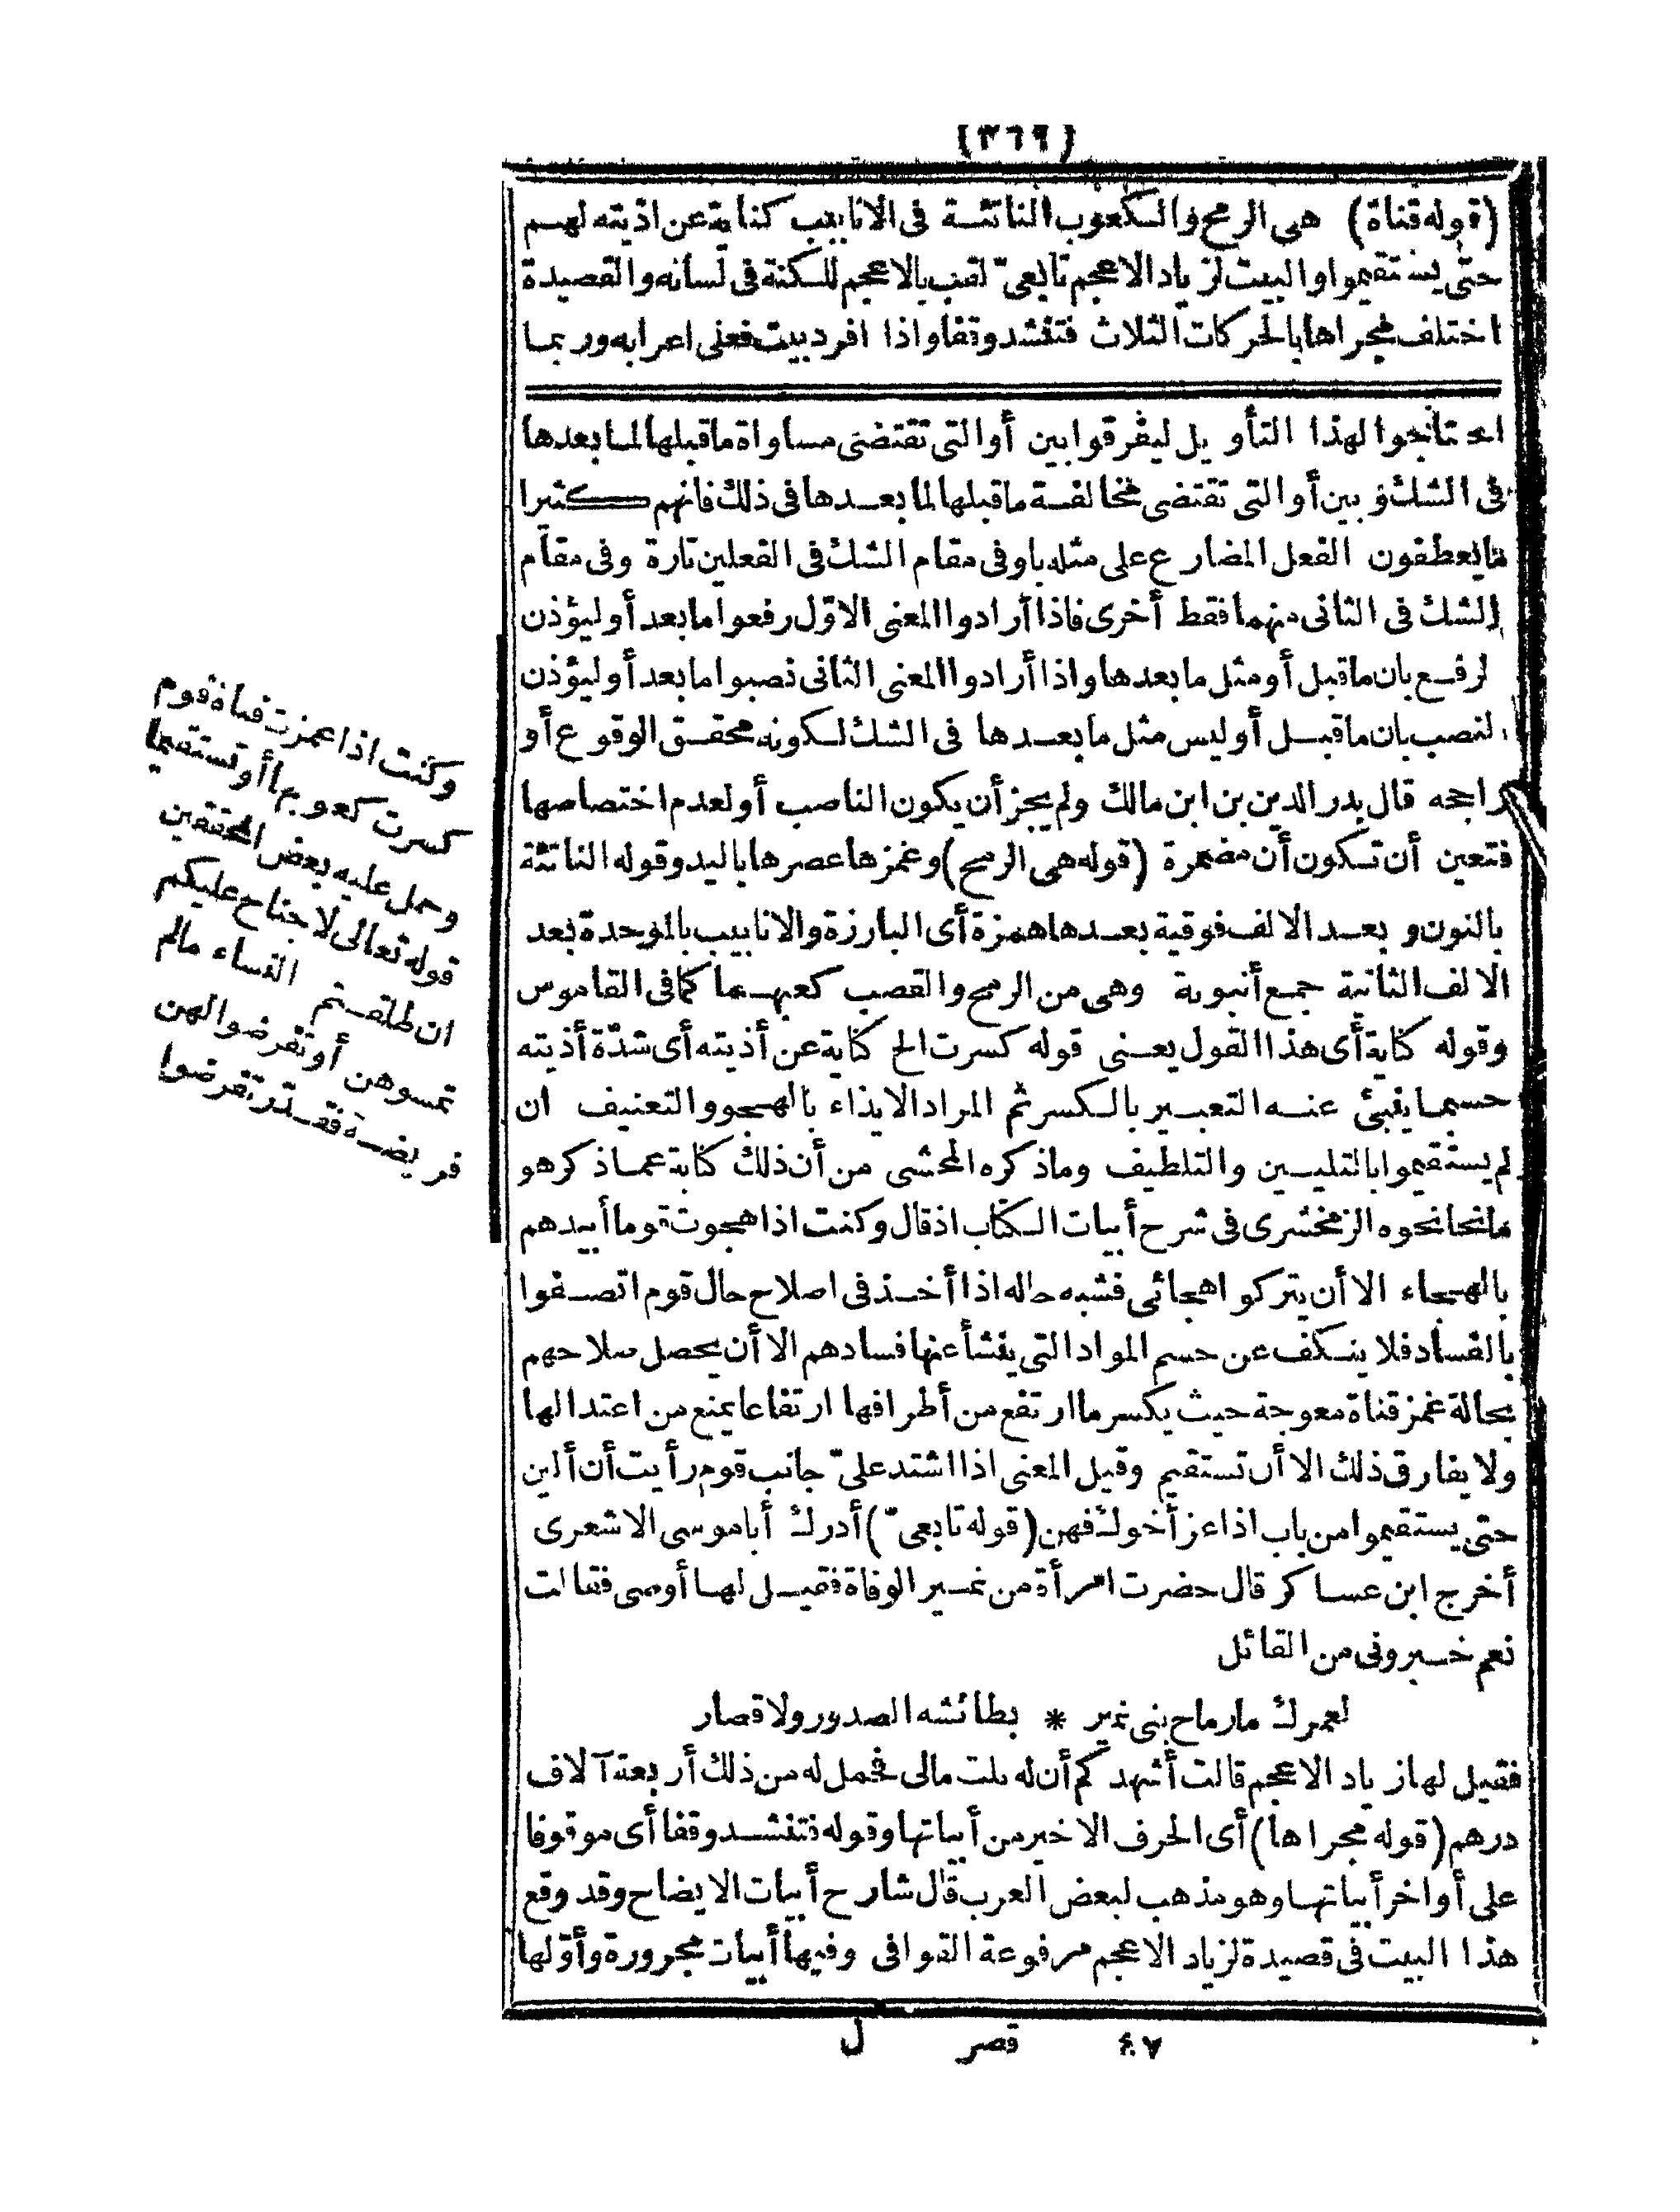 (٣٦٩)
(قوله قناة) هى الرمح والكعوب الناتئة فى الانابيب كناية عن اذيته لهم
حتى يستقيموا والبيت لزياد الاعجم تابعىّ لقب بالاعجم للكنة فى لسانه والقصيدة
اختلف مجراها بالحركات الثلاث فتنشد وقفا واذا افرد بيت فعلى اعرابه وربما
احتاجوا لهذا التأويل ليفرقوا بين أو التى تقتضى مساواة ما قبلها لما بعدها
فى الشك وبين أو التى تقتضى مخالفة ما قبلها لما بعدها فى ذلك فانهم كثيرا
ما يعطفون الفعل المضارع على مثله باو فى مقام الشك فى الفعلين تارة وفى مقام
الشك فى الثانى منهما فقط أخرى فاذا أرادوا المعنى الاوّل رفعوا ما بعد أو ليؤذن
لرفع بان ما قبل أو مثل ما بعدها واذا أرادوا المعنى الثانى نصبوا ما بعد أو ليؤذن
لنصب بان ما قبل أو ليس مثل ما بعدها فى الشك لكونه محقق الوقوع أو
راجحه قال بدر الدين بن ابن مالك ولم يجز أن يكون الناصب أو لعدم اختصاصها
فتعين أن تكون أن مضمرة (قوله هى الرمح) وغمزها عصرها باليد وقوله الناتئة
بالنون وبعد الالف فوقية بعدها همزة أى البارزة والانابيب بالموحدة بعد
الالف الثانية جمع أنبوبة وهى من الرمح والقصب كعبهما كما فى القاموس
وقوله كناية أى هذا القول يعنى قوله كسرت الخ كناية عن أذيته أى شدّة أذيته
حسبما ينبئ عنه التعبير بالكسر ثم المراد الايذاء بالهجو والتعنيف ان
لم يستقيموا بالتليين والتلطيف وما ذكره المحشى من أن ذلك كناية عما ذكر هو
ما نحا نحوه الزمخشرى فى شرح أبيات الكتاب اذ قال وكنت اذا هجوت قوما أبيدهم
بالهجاء الا أن يتركوا هجائى فشبه حاله اذا أخذ فى اصلاح حال قوم اتصفوا
بالفساد فلا ينكف عن حسم المواد التى ينشأ عنها فسادهم الا أن يحصل صلاحهم
بحالة غمز قناة معوجة حيث يكسر ما ارتفع من أطرافها ارتفاعا يمنع من اعتدالها
ولا يفارق ذلك الا أن تستقيم وقيل المعنى اذا اشتد علىّ جانب قوم رأيت أن ألين
حتى يستقيموا من باب اذا عز أخوك فهن (قوله تابعىّ) أدرك أبا موسى الاشعرى
أخرج ابن عساكر قال حضرت امرأة من نمير الوفاة فقيل لها أوصى فقالت
نعم خبرونى من القائل
لعمرك ما رماح بنى نمير * بطائشه الصدور ولا قصار
فقيل لها زياد الاعجم قالت أشهدكم أن له ثلث مالى فحمل له من ذلك أربعة آلاف
درهم (قوله مجراها) أى الحرف الاخير من أبياتها وقوله فتنشد وقفا أى موقوفا
على أواخر أبياتها وهو مذهب لبعض العرب قال شارح أبيات الايضاح وقد وقع
هذا البيت فى قصيدة لزياد الاعجم مرفوعة القوافى وفيها أبيات مجرورة وأوّلها
٤٧ قصر ل
وكنت اذا غمزت قناة قوم
كسرت كعوبها أو تستقيما
وحمل عليه بعض المحققين
قوله تعالى لا جناح عليكم
ان طلقتم النساء ما لم
تمسوهن أو تفرضوا لهن
فريضة فقدر تفرضوا